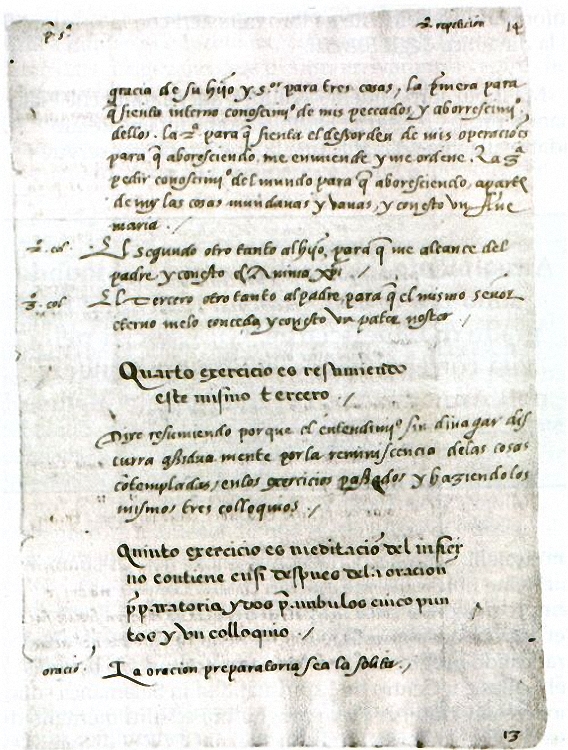 p.ª s.ª
2.ª repetición 14
gracia de su hijo y s.or para tres cosas, la p̃mera para
q̃ sienta interno conoscimi.º de mis peccados y aborrescimi.º
dellos. la 2.ª para q̃ sienta el desorden de mis operaciões
para q̃ aboresciendo, me enmiende y me ordene. la 3
pedir conoscimi.º del mundo para q̃ aboresciendo, aparte
de my las cosas mundanas y vanas, y con esto vn Aue
maria.
2.º col. El segundo otro tanto al hijo, para q̃ me alcance del
padre y con esto el Anima Xp̃i.
3.º col. El Tercero otro tanto al padre, para q̃ el mismo senor
eterno me lo conceda y con esto vn pater noster
Quarto exercicio es resumiendo
este mismo tercero.
Dixe resumiendo porque el entendimi.º sin diuagar dis
curra assidua mente por la reminiscencia de las cosas
cõtempladas, en los exercicios passados y haziendo los
mismos tres colloquios.
Quinto exercicio es meditació del infier
no contiene en si despues dela oracion
p̃paratoria, y dos p̃ambulos cinco pun
tos y vn colloquio.
oració. La oracion preparatoria sea la solita.
13